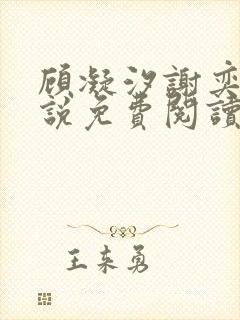 顾凝汐謝奕
說免費閱讀
王来勇